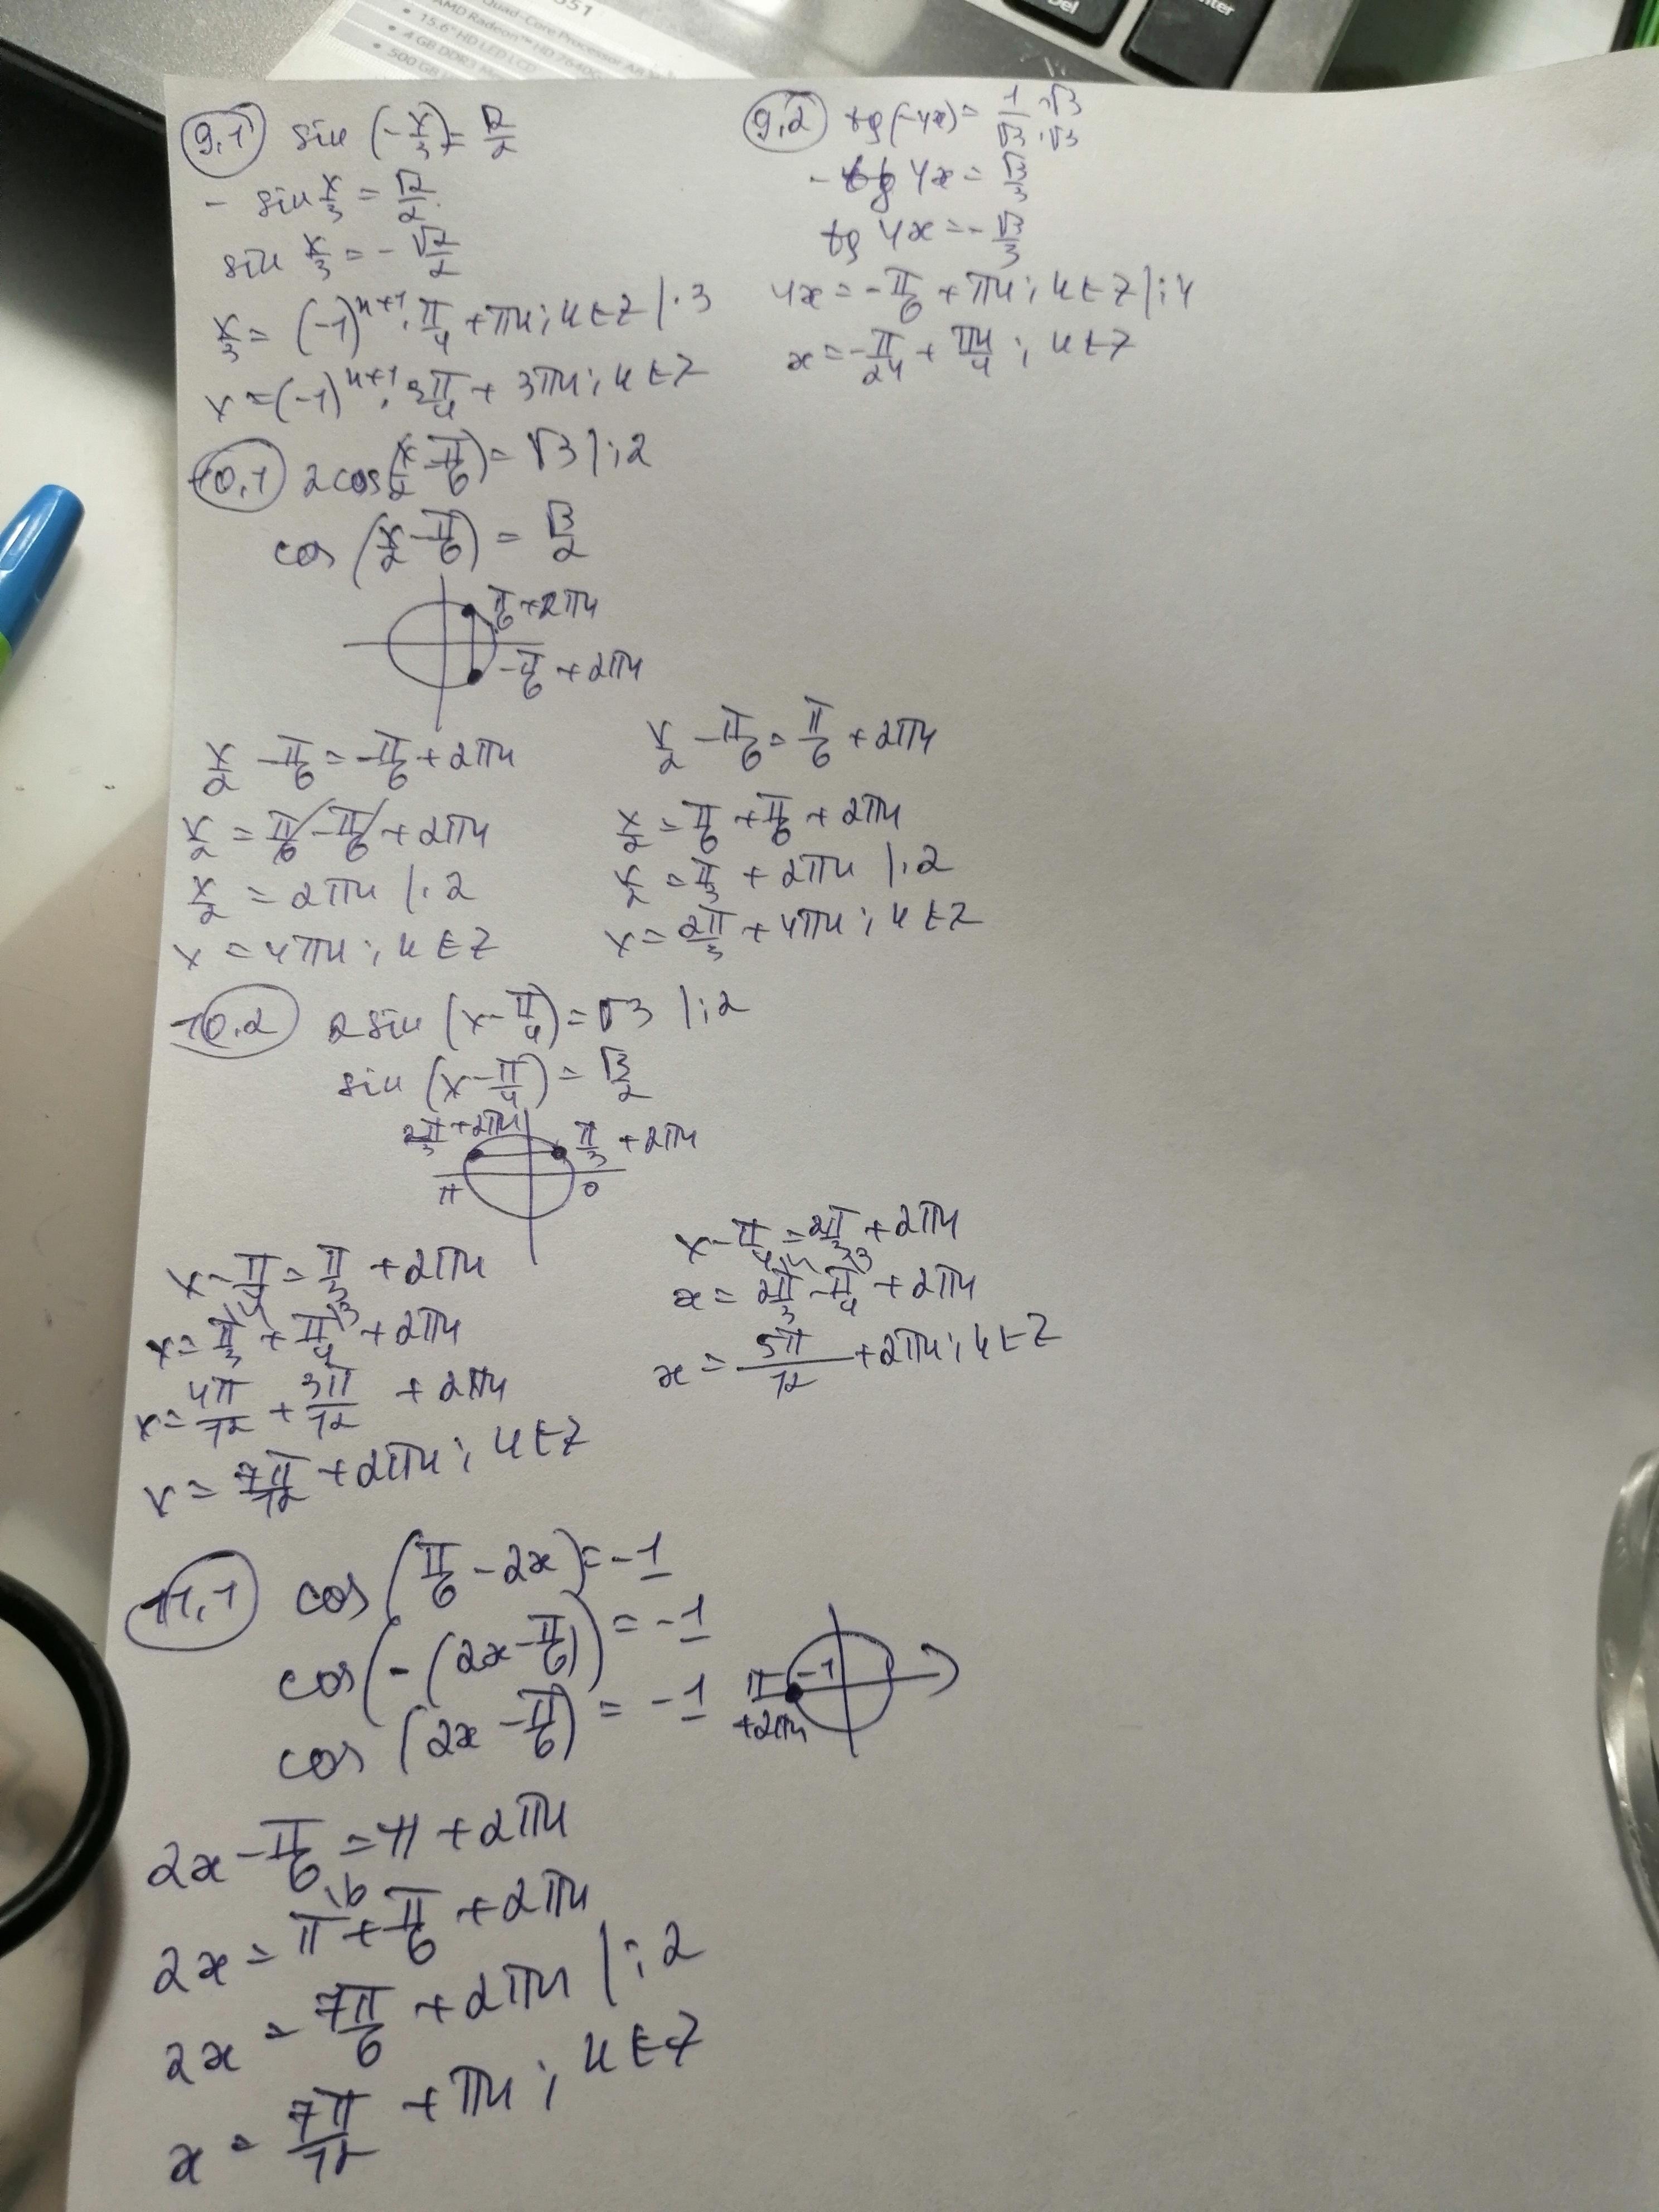 351
Quad-Core Processor
AMD Radeon™ HD 7640G
• 15.6" HD LED LCD
• 4 GB DDR3
• 500 GB
Del
Enter
9,1 sin (-x/3) = √2/2
- sin x/3 = √2/2
sin x/3 = - √2/2
x/3 = (-1)^(n+1) · π/4 + πn; n ∈ Z | · 3
x = (-1)^(n+1) · 3π/4 + 3πn; n ∈ Z
9,2 tg(-4x) = 1/√3 · √3/√3
- tg 4x = √3/3
tg 4x = - √3/3
4x = - π/6 + πn; n ∈ Z | : 4
x = - π/24 + πn/4; n ∈ Z
10,1 2cos(x/2 - π/6) = √3 | : 2
cos (x/2 - π/6) = √3/2
π/6 + 2πn
- π/6 + 2πn
x/2 - π/6 = - π/6 + 2πn
x/2 = π/6 - π/6 + 2πn
x/2 = 2πn | · 2
x = 4πn; n ∈ Z
x/2 - π/6 = π/6 + 2πn
x/2 = π/6 + π/6 + 2πn
x/2 = π/3 + 2πn | · 2
x = 2π/3 + 4πn; n ∈ Z
10.2 2 sin (x - π/4) = √3 | : 2
sin (x - π/4) = √3/2
2π/3 + 2πn
π/3 + 2πn
π 0
x - π/4 = π/3 + 2πn
x = π/3 + π/4 + 2πn
x = 4π/12 + 3π/12 + 2πn
x = 7π/12 + 2πn; n ∈ Z
x - π/4 = 2π/3 + 2πn
x = 2π/3 - π/4 + 2πn
x = 5π/12 + 2πn; n ∈ Z
11,1 cos (π/6 - 2x) = -1
cos (-(2x - π/6)) = -1
cos (2x - π/6) = -1
π -1
+2πn
2x - π/6 = π + 2πn
2x = π + π/6 + 2πn
2x = 7π/6 + 2πn | : 2
x = 7π/12 + πn; n ∈ Z